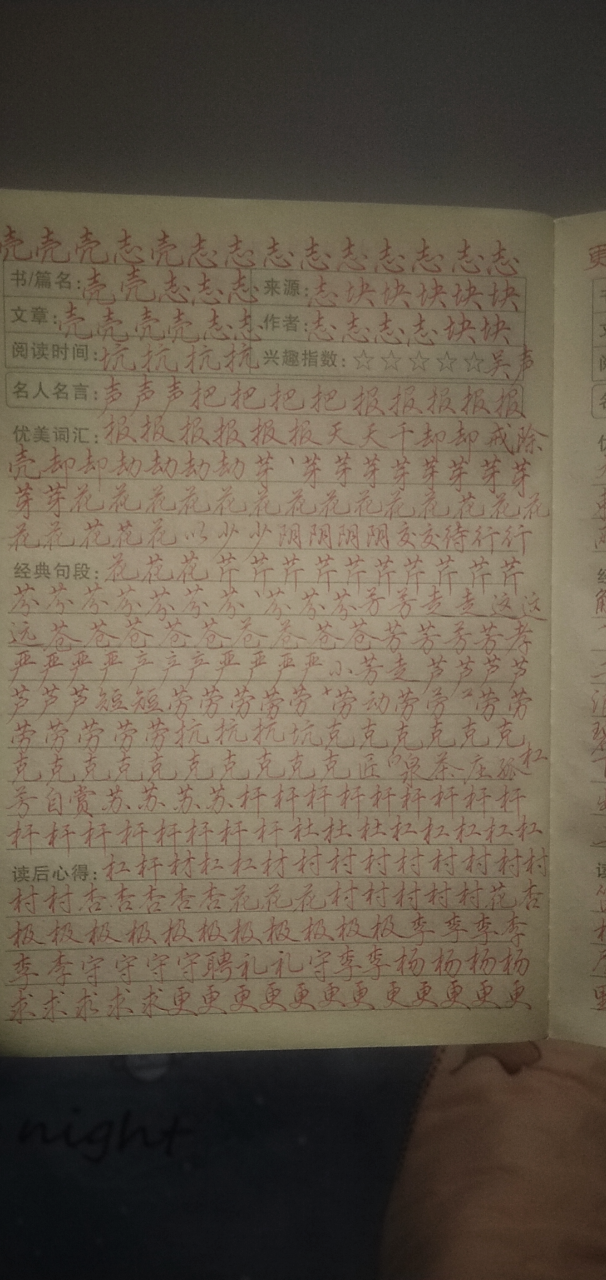 壳壳壳志壳志志志志志志志志志
书/篇名:壳壳志志志来源:志块块块块块
文章:壳壳壳壳志志作者:志志志志块块
阅读时间:坑抗抗抗兴趣指数:☆☆☆☆☆吴声
名人名言:声声声把把把把报报报报报
优美词汇:报报报报报报天天千却却戒除
壳却却劫劫劫劫芽、芽芽芽芽芽芽芽芽
芽芽花花花花花花花花花花花花花花花
花花花花花以少少阴阴阴阴交交待行行
经典句段:花花花芹芹芹芹芹芹芹芹芹芹
芬芬芬芬芬芬芬芬芬芬芳芳走走这这
远苍苍苍苍苍苍苍苍苍苍芳芳芳芳孝
严严严严产产产严严严严小芳走芦芦芦芦
芦芦芦短短劳劳劳劳劳劳动劳劳劳劳
劳劳劳劳劳抗抗抗坑克克克克克克
克克克克克克克克克克匠泉茶庄杠
自赏苏苏苏苏杆杆杆杆杆杆杆杆杆
杆杆杆杆杆杆杆杆杜杜杜杠杠杠杠杠
读后心得:杠杆材杠杠材村村村村村村村村
村村杏杏杏杏杏花花花村村村村村花杏
极极极极极极极极极极极李李李李
李李守守守守聘礼礼守李李杨杨杨杨
求求求求求更更更更更更更更更更更更
更
night